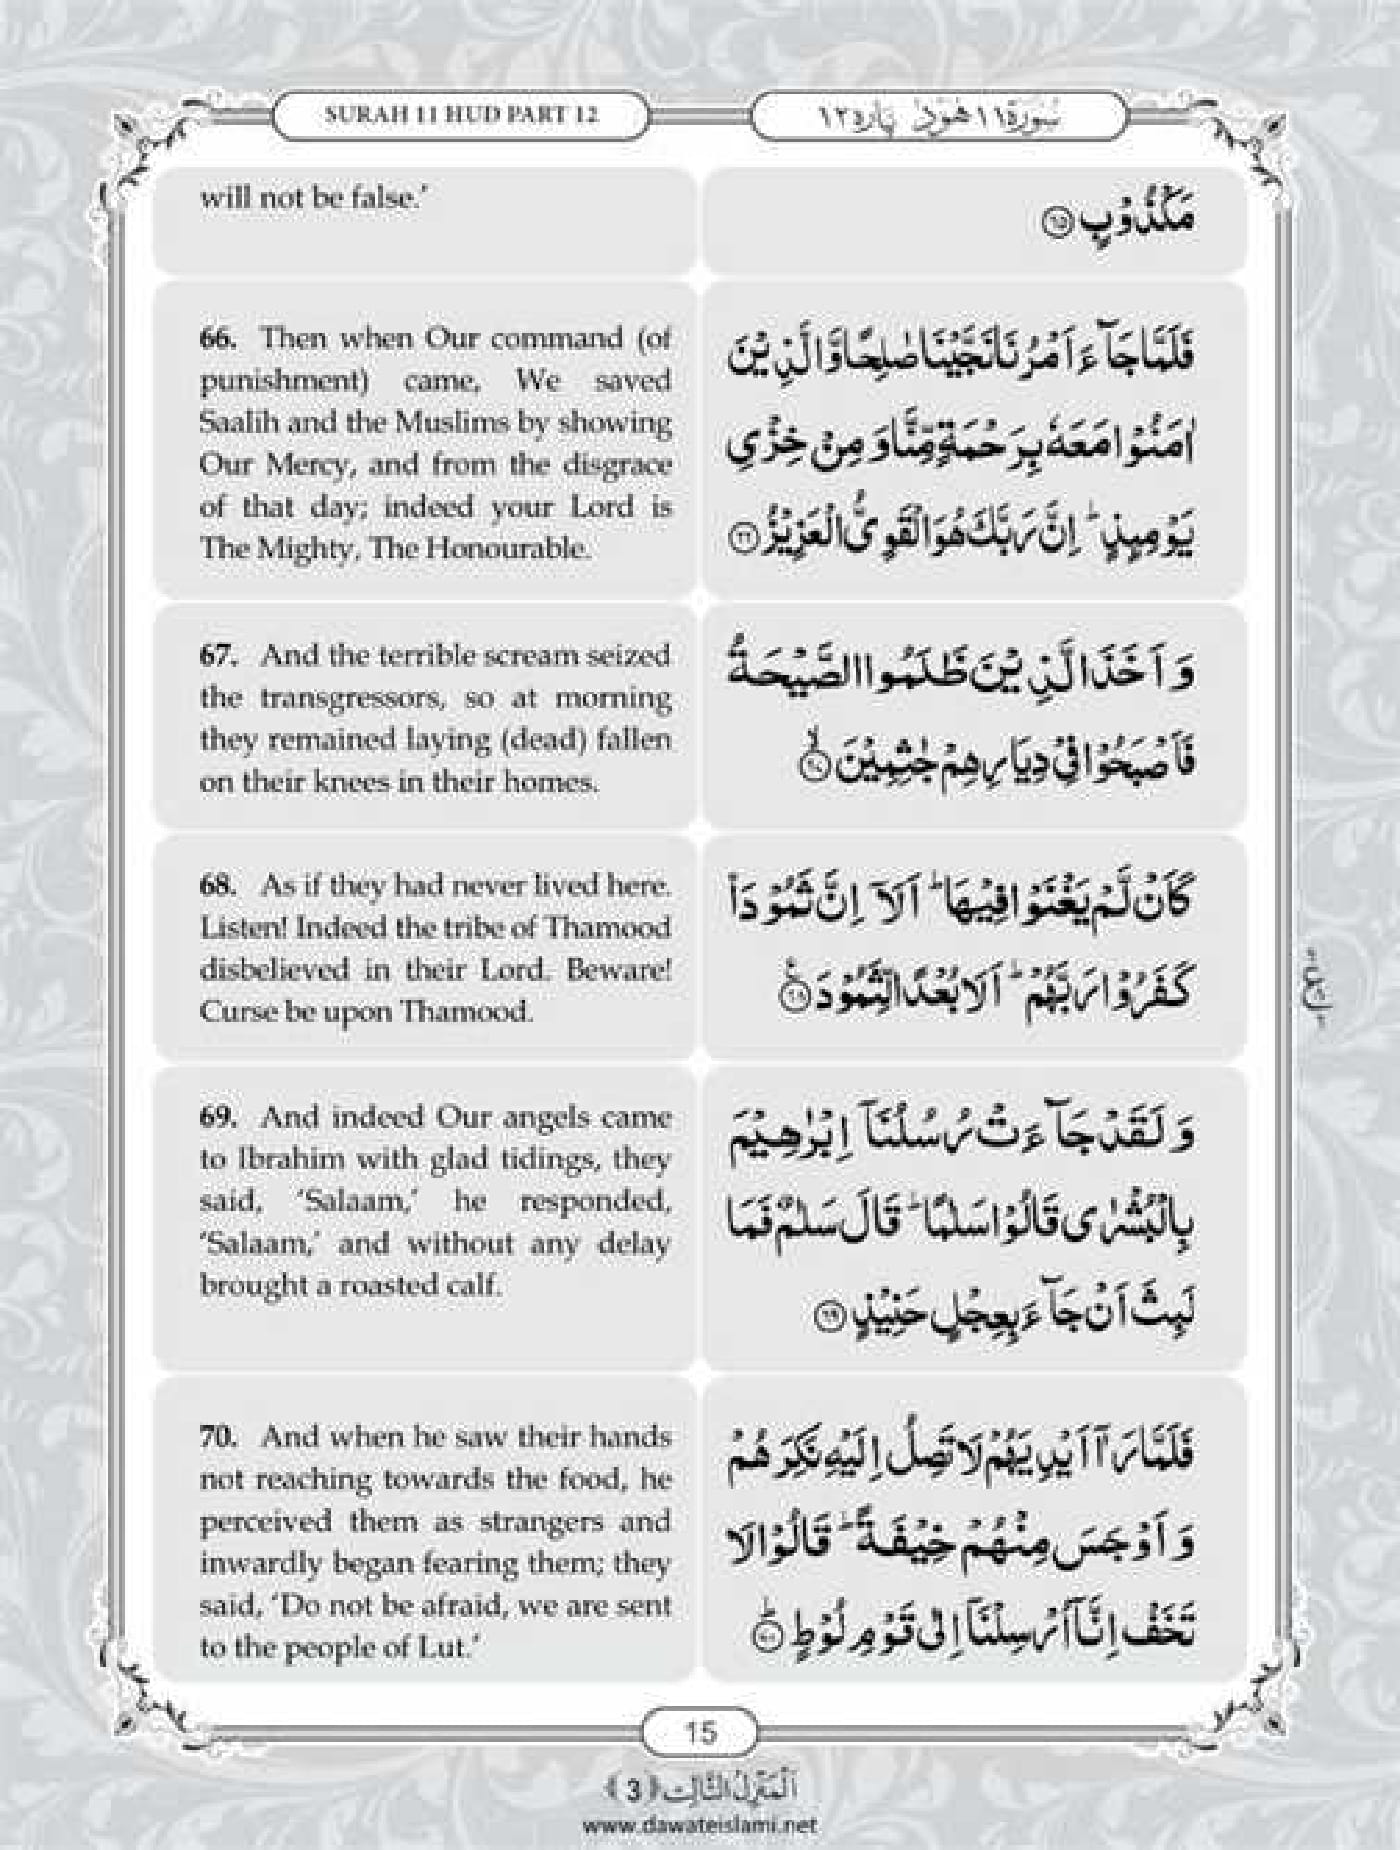 SURAH 11 HUD PART 12
سُوْرَة ١١ هُوْد پارہ ١٢
will not be false.’
مَكْذُوْبٍ ۝٦٥
66. Then when Our command (of
punishment) came, We saved
Saalih and the Muslims by showing
Our Mercy, and from the disgrace
of that day; indeed your Lord is
The Mighty, The Honourable.
فَلَمَّا جَآءَ اَمْرُنَا نَجَّيْنَا صٰلِحًا وَّ الَّذِيْنَ
اٰمَنُوْا مَعَهٗ بِرَحْمَةٍ مِّنَّا وَ مِنْ خِزْيِ
يَوْمِىِٕذٍ ؕ اِنَّ رَبَّكَ هُوَ الْقَوِيُّ الْعَزِيْزُ ۝٦٦
67. And the terrible scream seized
the transgressors, so at morning
they remained laying (dead) fallen
on their knees in their homes.
وَ اَخَذَ الَّذِيْنَ ظَلَمُوا الصَّيْحَةُ
فَاَصْبَحُوْا فِيْ دِيَارِهِمْ جٰثِمِيْنَ ۙ۝٦٧
68. As if they had never lived here.
Listen! Indeed the tribe of Thamood
disbelieved in their Lord. Beware!
Curse be upon Thamood.
كَاَنْ لَّمْ يَغْنَوْا فِيْهَا ؕ اَلَاۤ اِنَّ ثَمُوْدَاۡ
كَفَرُوْا رَبَّهُمْ ؕ اَلَا بُعْدًا لِّثَمُوْدَ ۝٦٨
69. And indeed Our angels came
to Ibrahim with glad tidings, they
said, ‘Salaam,’ he responded,
‘Salaam,’ and without any delay
brought a roasted calf.
وَ لَقَدْ جَآءَتْ رُسُلُنَاۤ اِبْرٰهِيْمَ
بِالْبُشْرٰى قَالُوْا سَلٰمًا ؕ قَالَ سَلٰمٌ فَمَا
لَبِثَ اَنْ جَآءَ بِعِجْلٍ حَنِيْذٍ ۝٦٩
70. And when he saw their hands
not reaching towards the food, he
perceived them as strangers and
inwardly began fearing them; they
said, ‘Do not be afraid, we are sent
to the people of Lut.’
فَلَمَّا رَاٰۤ اَيْدِيَهُمْ لَا تَصِلُ اِلَيْهِ نَكِرَهُمْ
وَ اَوْجَسَ مِنْهُمْ خِيْفَةً ؕ قَالُوْا لَا
تَخَفْ اِنَّاۤ اُرْسِلْنَاۤ اِلٰى قَوْمِ لُوْطٍ ؕ۝٧٠
15
اَلْمَنْزِلُ الثَّالِث ﴿3﴾
www.dawateislami.net